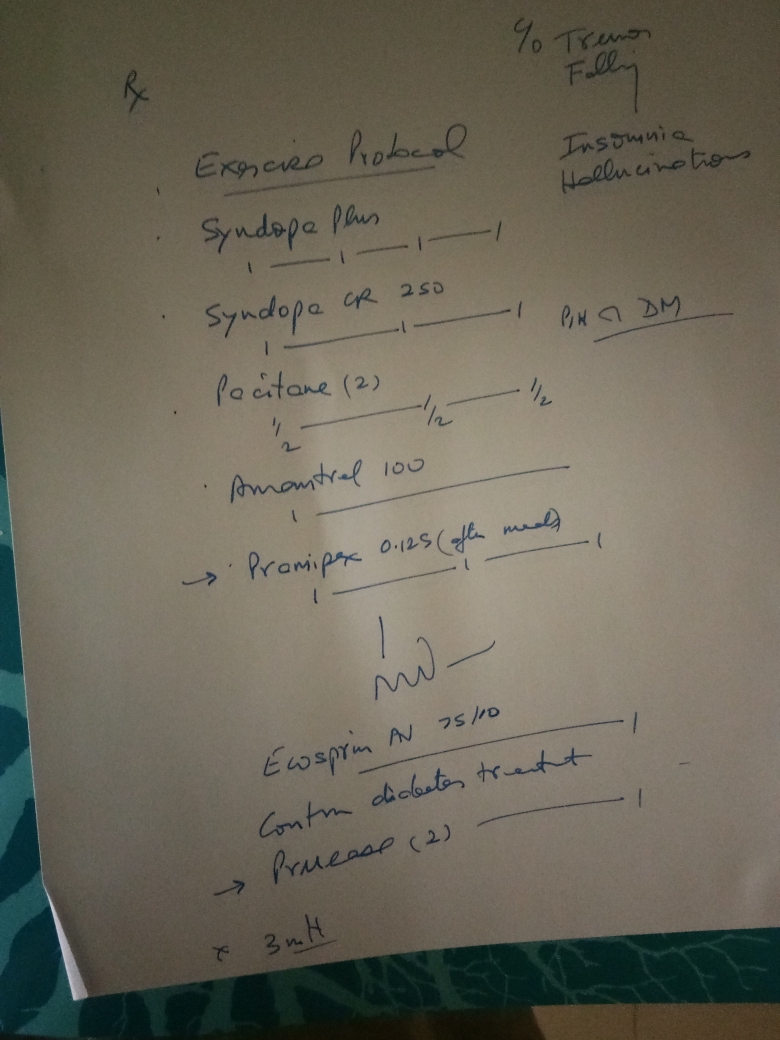 ℅ Tremor
Falling
Insomnia
Hallucinations
Rx
Exercise Protocol
Syndopa Plus
1 — 1 — 1 — 1
Syndopa CR 250
1 — 1 — 1
P/H DM
Pacitane (2)
1/2 — 1/2 — 1/2
Amantrel 100
1 —
→ Pramipex 0.125 (after meals)
1 — 1 — 1
Ecosprin AV 75/10
— 1
Contin diabetes treatment
→ Prucease (2) — 1
x 3 mth